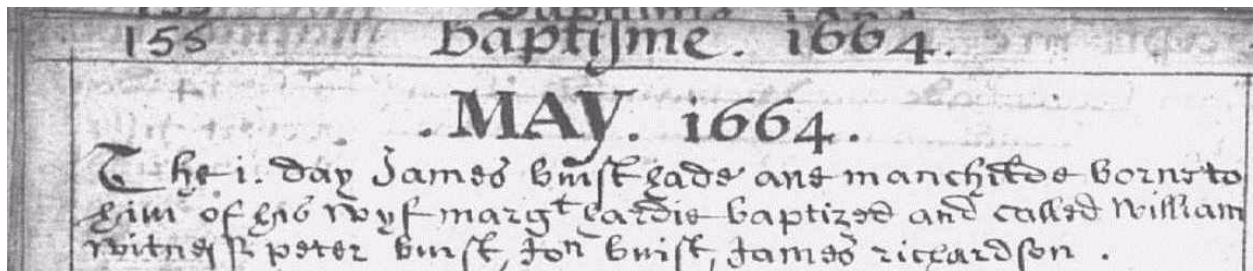 155 Baptisme. 1664.
. MAY. 1664.
The i. day James buist hade ane manchilde borne to
him of his wyf margt hardie baptized and called William
witness peter buist, Jon buist, James richardson .